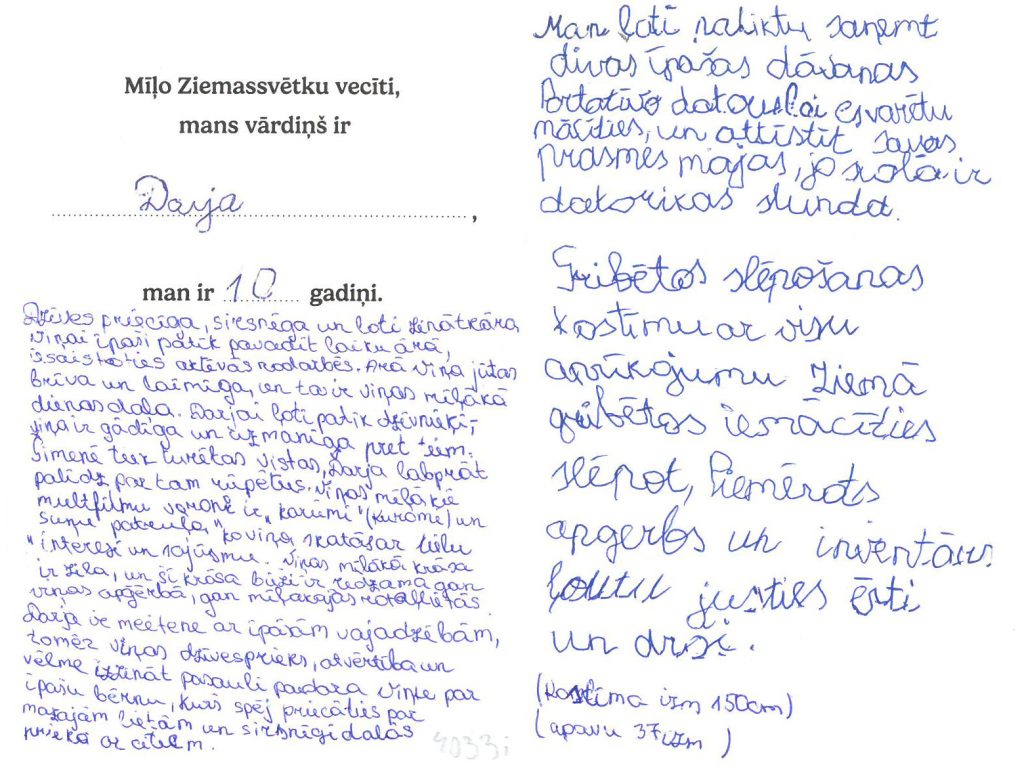 Mīļo Ziemassvētku vecīti,
mans vārdiņš ir
Darja,
man ir 10 gadiņi.
Dzīves priecīga, sirsnēga un ļoti zinātkāra
Viņai īpaši patīk pavadīt laiku ārā,
issaistoties aktēvās nodarbēs. Ārā viņa jūtas
brīva un laimīga, un tas ir viņas mīļākā
dienas daļa. Darjai ļoti patīk dzēvnieki,
viņa ir gādīga un uzmanīga pret tiem.
Ģimenē tiek turētas vistas, Darja labprāt
palīdz par tam rūpētus. Viņas mīļākie
multfilmu varoņi ir "Karumi" (Kuromi) un
"Suņu patruļa," ko viņa skatās ar lielu
interesi un sajūsmu. Viņas mīļākā krāsa
ir zila, un šī krāsa bieži ir redzama gan
viņas apģērbā, gan mīļākajās rotaļlietās.
Darja ir meitene ar īpašām vajadzēbām,
tomēr viņas dzīvesprieks, atvērtība un
vēlme izzināt pasauli padara viņu par
īpašu bērnu, kurš spēj priecāties par
mazajām lietām un sirsnīgi dalās
priekā ar citiem.
4033i
Man ļoti patiktu saņemt
divas īpašas dāvanas
Portatīvo datoru lai es varētu
mācīties, un attīstīt savas
prasmes mājas, jo skolā ir
datorikas stunda.
Gribētos slēpošanas
kostīmu ar visu
aprīkojumu Ziemā
gribētos iemācīties
slēpot, Piemērots
apģerbs un inventārs
justies ērti
un droši.
(Kostīma izm 150cm)
(apavu 37 izm)